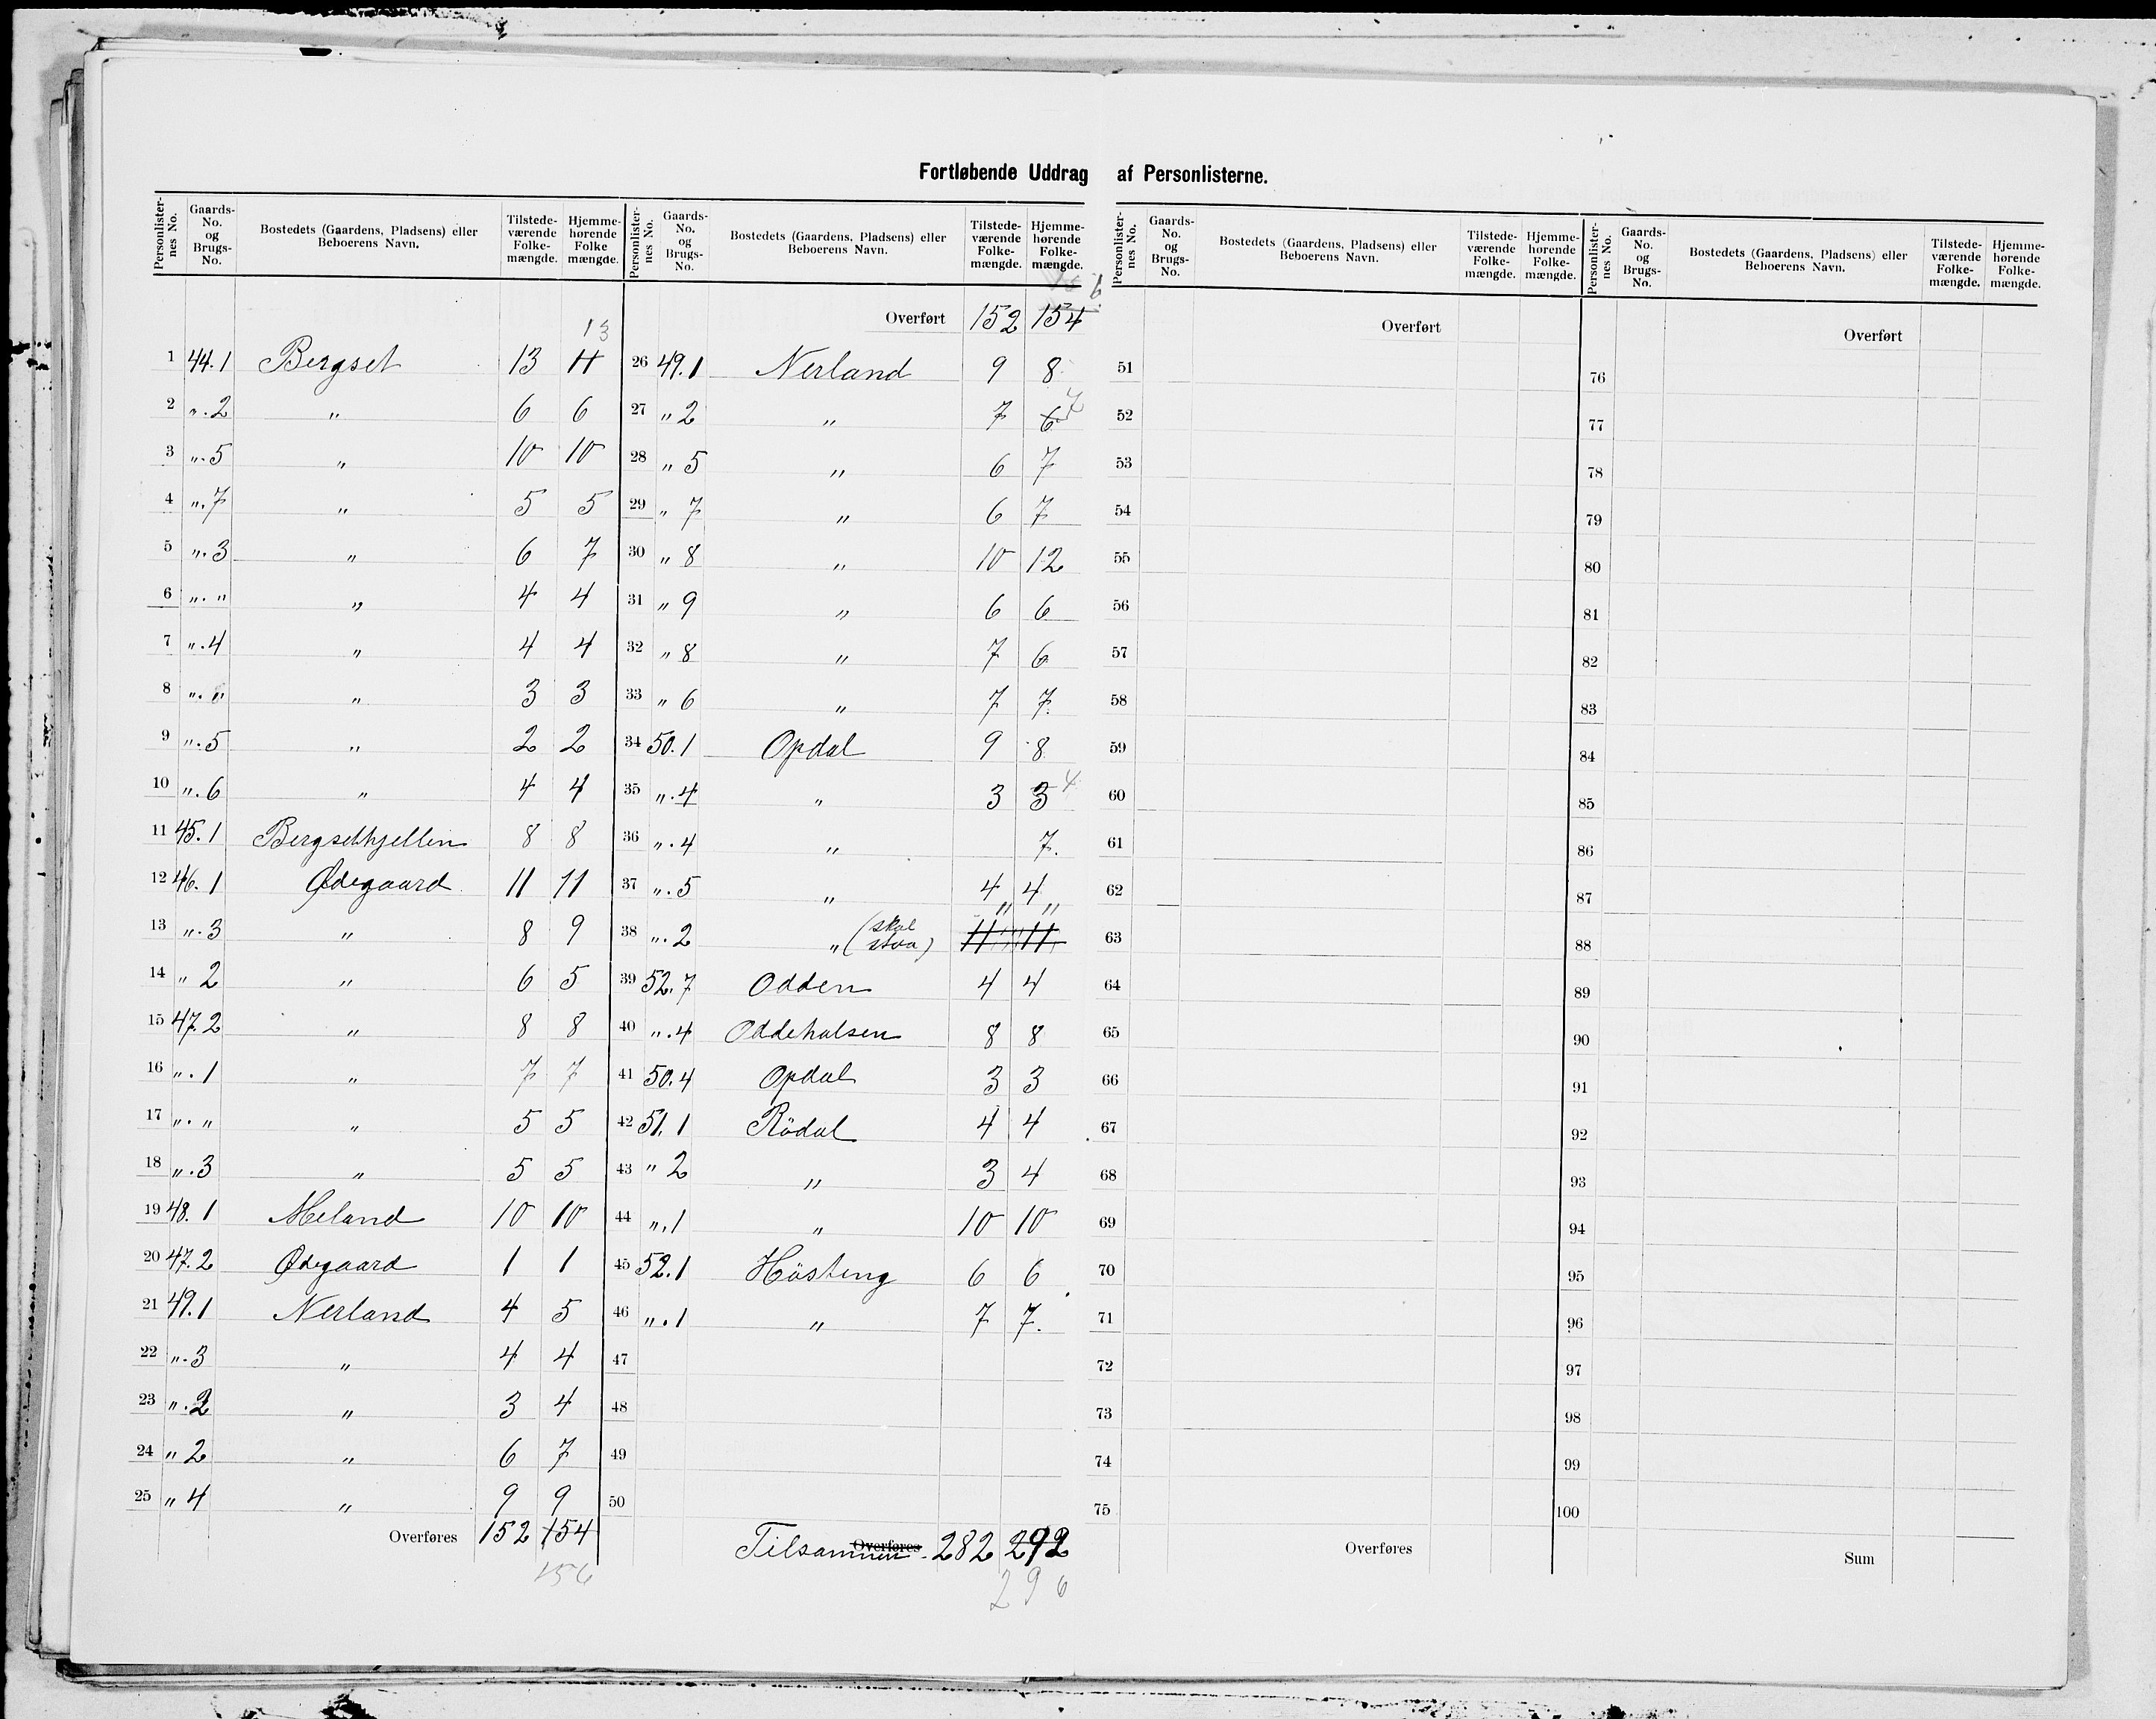 Fortløbende Uddrag af Personlisterne.
Personlisternes No. Gaards-No. og Brugs-No. Bostedets (Gaardens, Pladsens) eller Beboerens Navn. Tilstedeværende Folkemængde. Hjemmehørende Folkemængde.
13
1 44.1 Bergset 13 11
2 ".2 " 6 6
3 ".5 " 10 10
4 ".7 " 5 5
5 ".3 " 6 7
6 "." " 4 4
7 ".4 " 4 4
8 "." " 3 3
9 ".5 " 2 2
10 ".6 " 4 4
11 45.1 Bergsethjellen 8 8
12 46.1 Ødegaard 11 11
13 ".3 " 8 9
14 " 2 " 6 5
15 47.2 " 8 8
16 ".1 " 7 7
17 "." " 5 5
18 ".3 " 5 5
19 48.1 Meland 10 10
20 47.2 Ødegaard 1 1
21 49.1 Nerland 4 5
22 ".3 " 4 4
23 ".2 " 3 4
24 " 2 " 6 7
25 " 4 " 9 9
Overføres 152 154
156
Personlisternes No. Gaards-No. og Brugs-No. Bostedets (Gaardens, Pladsens) eller Beboerens Navn. Tilstedeværende Folkemængde. Hjemmehørende Folkemængde.
Overført 152 154
26 49.1 Nerland 9 8
27 " 2 " 7 6 7
28 " 5 " 6 7
29 " 7 " 6 7
30 " 8 " 10 12
31 " 9 " 6 6
32 " 8 " 7 6
33 " 6 " 7 7.
34 50.1 Opdal 9 8
35 ".4 " 3 3 4
36 ".4 " 7.
37 ".5 " 4 4
38 ".2 " (skal staa) " "
39 52.7 Odden 4 4
40 ".4 Oddehalsen 8 8
41 50.4 Opdal 3 3
42 51.1 Rödal 4 4
43 " 2 " 3 4
44 ".1 " 10 10
45 52.1 Hästeng 6 6
46 ".1 " 7 7.
47
48
49
50
Overføres
Tilsammen. 282 292
296
Personlisternes No. Gaards-No. og Brugs-No. Bostedets (Gaardens, Pladsens) eller Beboerens Navn. Tilstedeværende Folkemængde. Hjemmehørende Folkemængde.
Overført
51
52
53
54
55
56
57
58
59
60
61
62
63
64
65
66
67
68
69
70
71
72
73
74
75
Overføres
Personlisternes No. Gaards-No. og Brugs-No. Bostedets (Gaardens, Pladsens) eller Beboerens Navn. Tilstedeværende Folkemængde. Hjemmehørende Folkemængde.
Overført
76
77
78
79
80
81
82
83
84
85
86
87
88
89
90
91
92
93
94
95
96
97
98
99
100
Sum